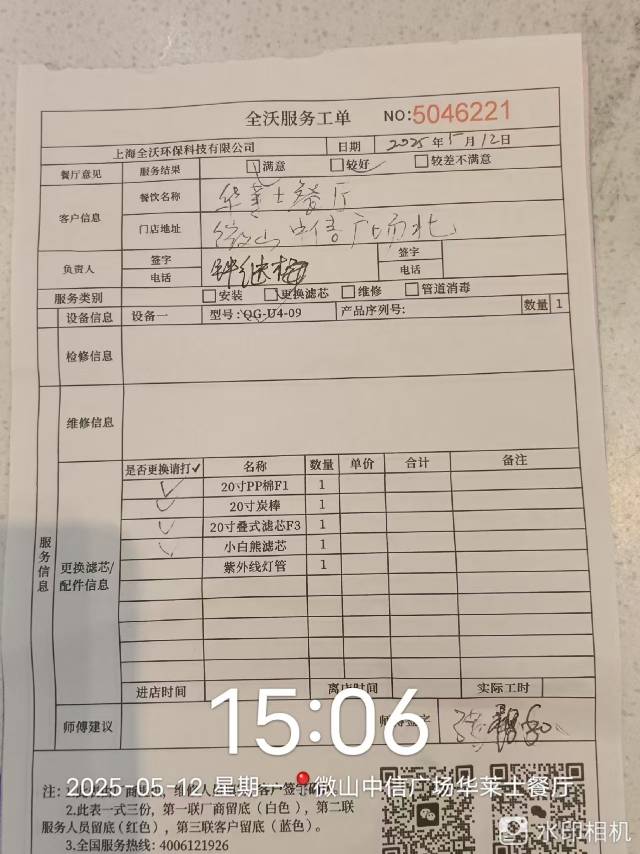 全沃服务工单 NO:5046221
上海全沃环保科技有限公司 日期 2025年5月12日
餐厅意见 服务结果 满意 较好 较差不满意
客户信息 餐饮名称 华莱士餐厅
门店地址 微山中信广场北
负责人 签字 钟继梅 签字
电话 电话
服务类别 安装 更换滤芯 维修 管道消毒
设备信息 设备一 型号:QG-U4-09 产品序列号: 数量 1
检修信息
维修信息
服务信息
更换滤芯/配件信息
是否更换请打✓ 名称 数量 单价 合计 备注
✓ 20寸PP棉F1 1
✓ 20寸炭棒 1
✓ 20寸叠式滤芯F3 1
✓ 小白熊滤芯 1
紫外线灯管 1
进店时间 离店时间 实际工时
师傅建议 师傅签字
15:06
2025-05-12 星期一 微山中信广场华莱士餐厅
注:
2.此表一式三份,第一联厂商留底(白色),第二联
服务人员留底(红色),第三联客户留底(蓝色)。
3.全国服务热线:4006121926
水印相机